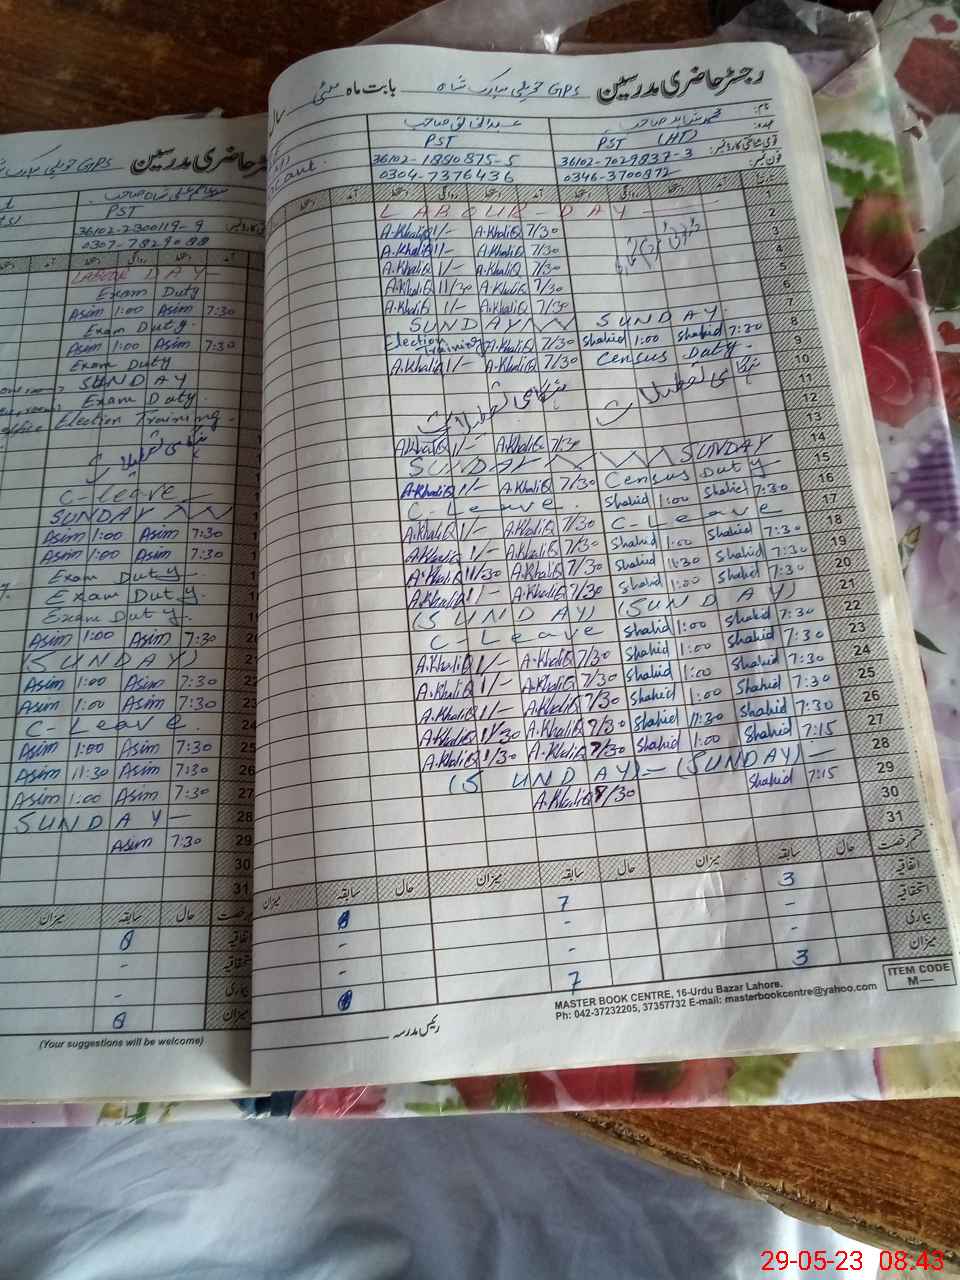 رجسٹر حاضری مدرسین GPS حویلی مبارک شاہ بابت ماہ مئی سال
نام:
عہدہ: PST (HT) PST
قومی شناختی کارڈ نمبر: 36102-7029837-3 36102-1890875-5
فون نمبر: 0346-3700872 0304-7376436
LABOUR-DAY
A.KhaliQ 1/- A.KhaliQ 7/30
A.KhaliQ 1/- A.KhaliQ 7/30
A.KhaliQ 1/- A.KhaliQ 7/30
A.KhaliQ 11/30 A.KhaliQ 7/30
A.KhaliQ 1/- A.KhaliQ 7/30
SUNDAY SUNDAY
Election Training A.KhaliQ 7/30 Shahid 1:00 Shahid 7:30
A.KhaliQ 1/- A.KhaliQ 7/30 Census Duty
ہنگامی تعطیلات ہنگامی تعطیلات
A.KhaliQ 1/- A.KhaliQ 7/30
SUNDAY SUNDAY
A.KhaliQ 1/- A.KhaliQ 7/30 Census Duty
C-Leave Shahid 1:00 Shahid 7:30
A.KhaliQ 1/- A.KhaliQ 7/30 C-Leave
A.KhaliQ 1/- A.KhaliQ 7/30 Shahid 1:00 Shahid 7:30
A.KhaliQ 11/30 A.KhaliQ 7/30 Shahid 11:30 Shahid 7:30
A.KhaliQ 1/- A.KhaliQ 7/30 Shahid 1:00 Shahid 7:30
(SUNDAY) (SUNDAY)
C-Leave Shahid 1:00 Shahid 7:30
A.KhaliQ 1/- A.KhaliQ 7/30 Shahid 1:00 Shahid 7:30
A.KhaliQ 1/- A.KhaliQ 7/30 Shahid 1:00 Shahid 7:30
A.KhaliQ 1/- A.KhaliQ 7/30 Shahid 1:00 Shahid 7:30
A.KhaliQ 11/30 A.KhaliQ 7/30 Shahid 11:30 Shahid 7:30
A.KhaliQ 1/30 A.KhaliQ 7/30 Shahid 1:00 Shahid 7:15
(SUNDAY)-(SUNDAY)
A.KhaliQ 7/30 Shahid 7:15
1
2
3
4
5
6
7
8
9
10
11
12
13
14
15
16
17
18
19
20
21
22
23
24
25
26
27
28
29
30
31
حال سابقہ میزان حال سابقہ میزان حال سابقہ میزان
اتفاقیہ 3 7
استحقاقیہ - - -
بیماری - - -
میزان 3 7
رئیس مدرسہ
MASTER BOOK CENTRE, 16-Urdu Bazar Lahore.
Ph: 042-37232205, 37357732 E-mail: masterbookcentre@yahoo.com
ITEM CODE
M—
رجسٹر حاضری مدرسین GPS
PST
36102-2300119-9
0307-7829088
LABOUR DAY-
Exam Duty
Asim 1:00 Asim 7:30
Exam Duty.
Asim 1:00 Asim 7:30
Exam Duty
SUNDAY
Exam Duty.
Election Training.
ہنگامی تعطیلات
C-leave
SUNDAY
Asim 1:00 Asim 7:30
Asim 1:00 Asim 7:30
Exam Duty
Exam Duty.
Exam Duty.
Asim 1:00 Asim 7:30
(SUNDAY)
Asim 1:00 Asim 7:30
Asim 1:00 Asim 7:30
C-Leave
Asim 1:00 Asim 7:30
Asim 11:30 Asim 7:30
Asim 1:00 Asim 7:30
SUNDAY-
Asim 7:30
28
29
30
31
حال سابقہ میزان
اتفاقیہ
استحقاقیہ -
بیماری -
میزان
(Your suggestions will be welcome)
29-05-23 08:43